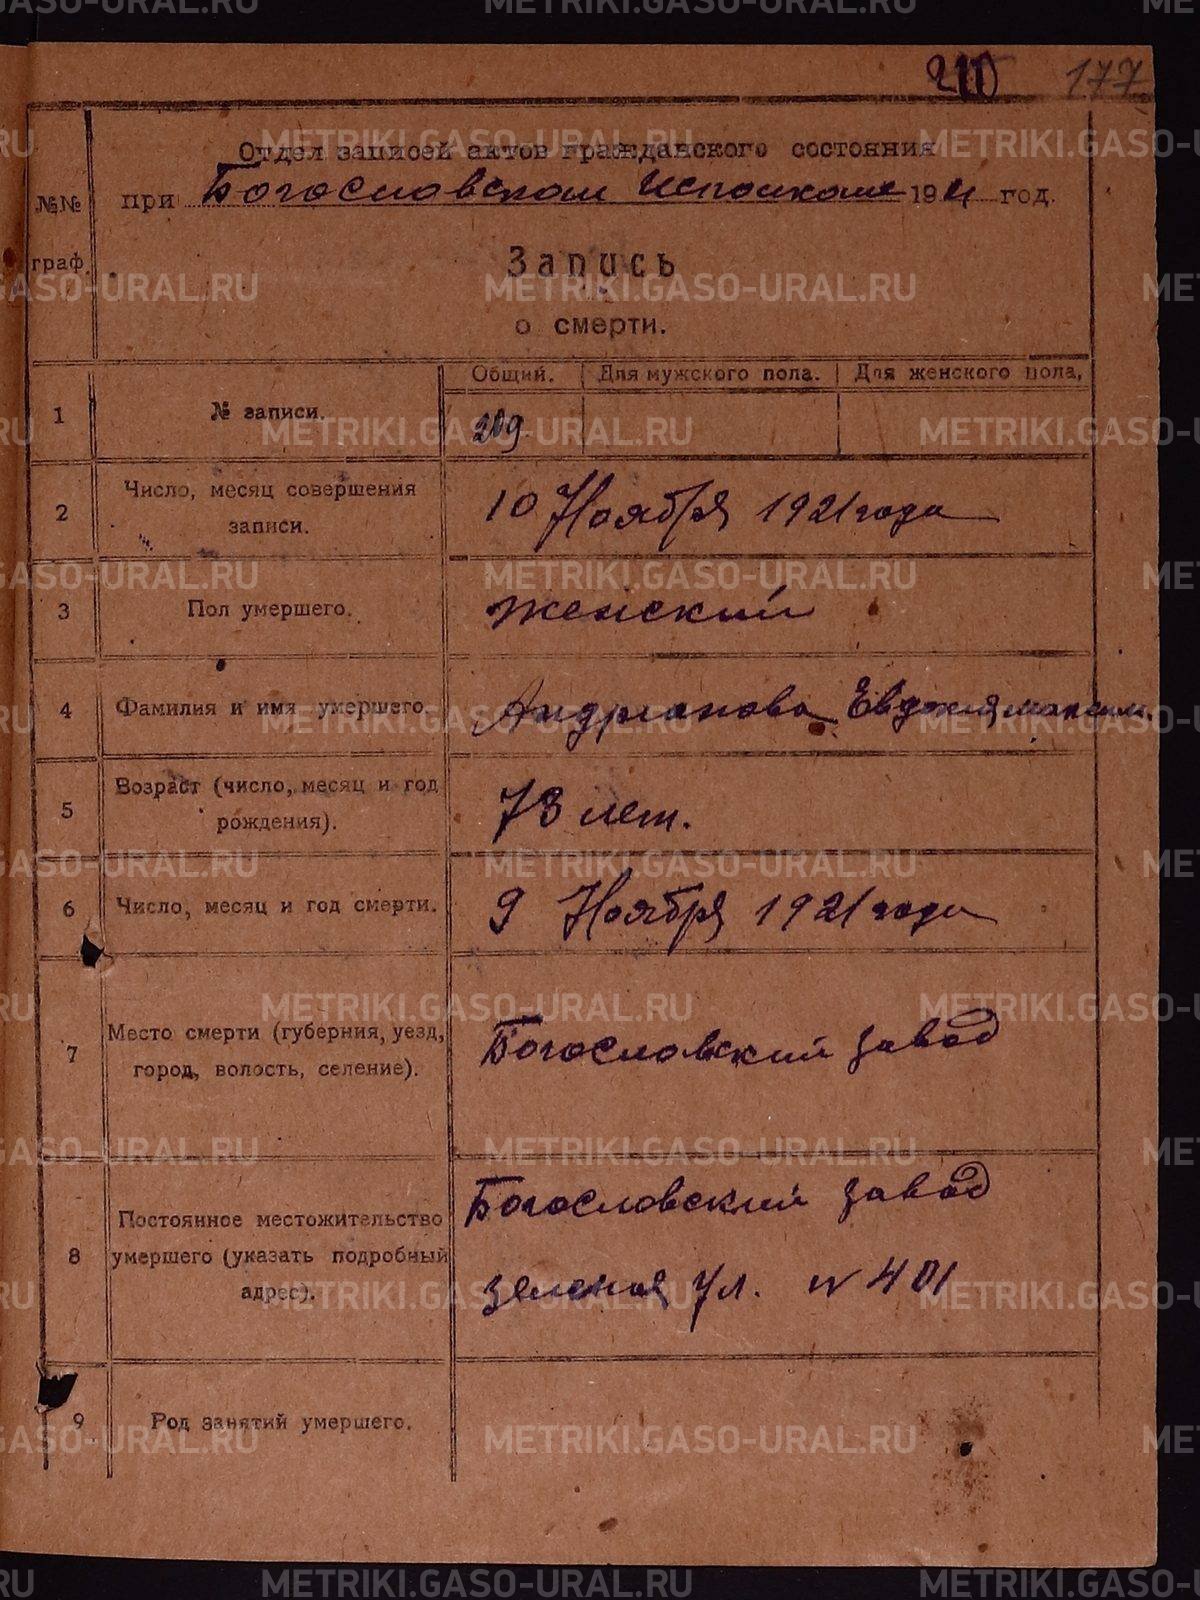 177
Отдел записей актов гражданского состояния
№№ граф.
при Богословском Исполкоме 1921 год.
Запись
о смерти.
Общий. Для мужского пола. Для женского пола.
1 № записи. 209
2 Число, месяц совершения записи. 10 Ноября 1921 года
3 Пол умершего. женский
4 Фамилия и имя умершего. Андрианова Евдокия максим.
5 Возраст (число, месяц и год рождения). 73 лет.
6 Число, месяц и год смерти. 9 Ноября 1921 года
7 Место смерти (губерния, уезд, город, волость, селение). Богословский завод
8 Постоянное местожительство умершего (указать подробный адрес). Богословский завод
зеленая ул. № 401
9 Род занятий умершего.
METRIKI.GASO-URAL.RU